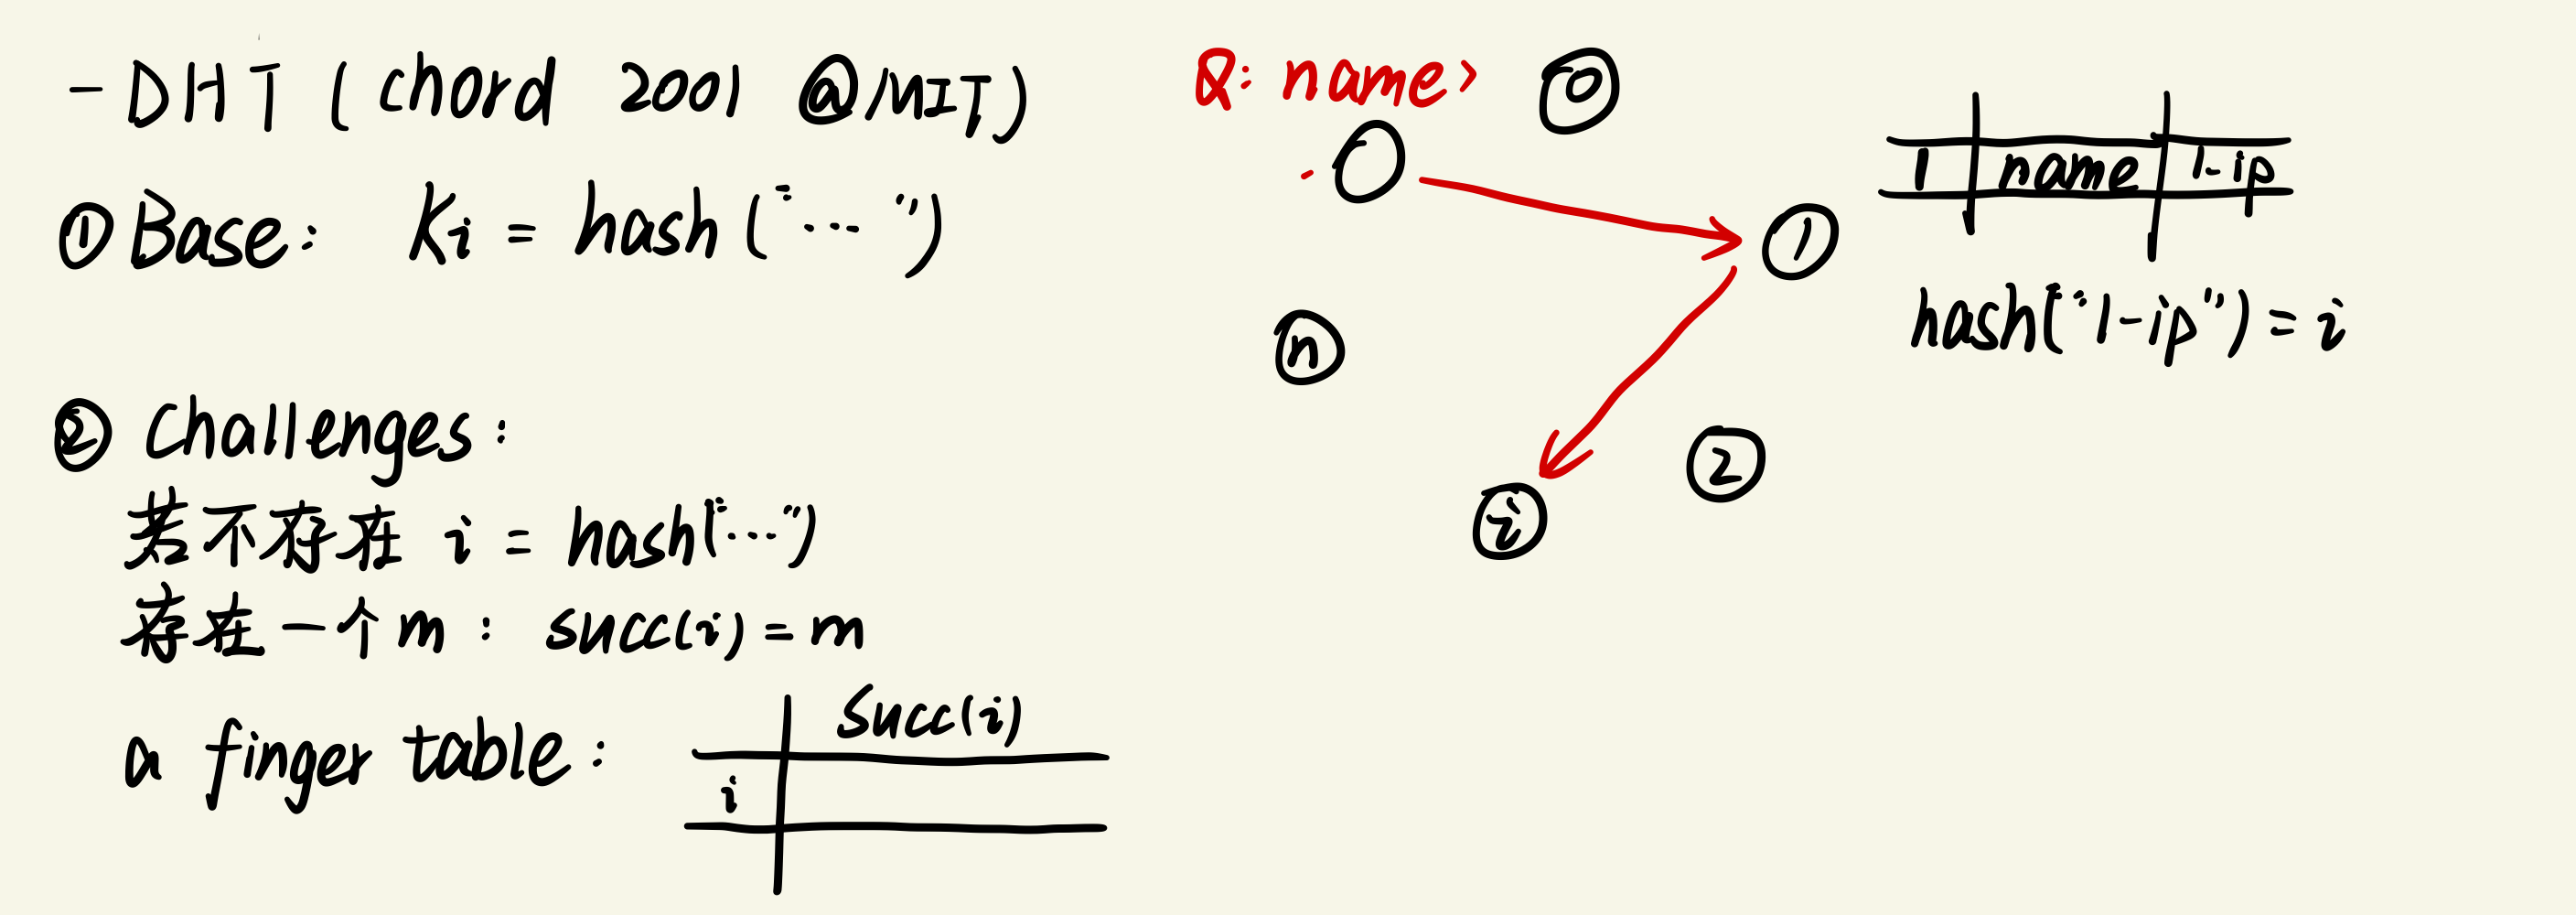 - DHT (chord 2001 @MIT)
① Base: Ki = hash("...")
② Challenges:
若不存在 i = hash("...")
存在一个m: succ(i) = m
a finger table:
succ(i)
i
Q: name>
0
1
2
i
n
1 name 1-ip
hash("1-ip") = i